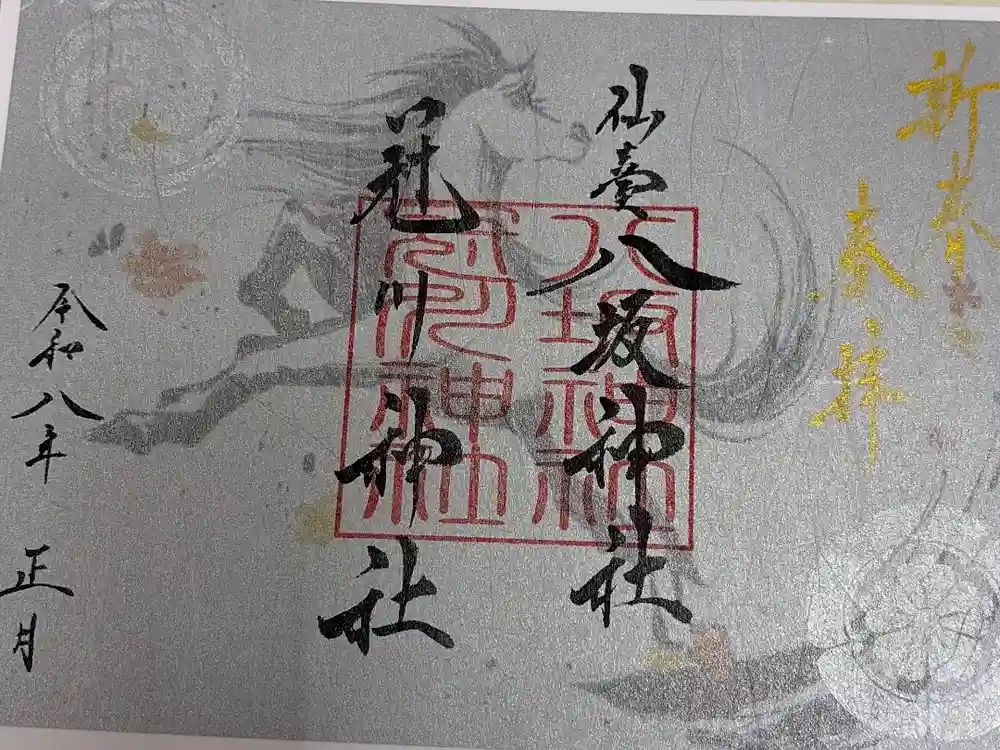 新春
奉拝
仙臺八坂神社
冠川神社
令和八年 正月
八坂神社
冠川神社